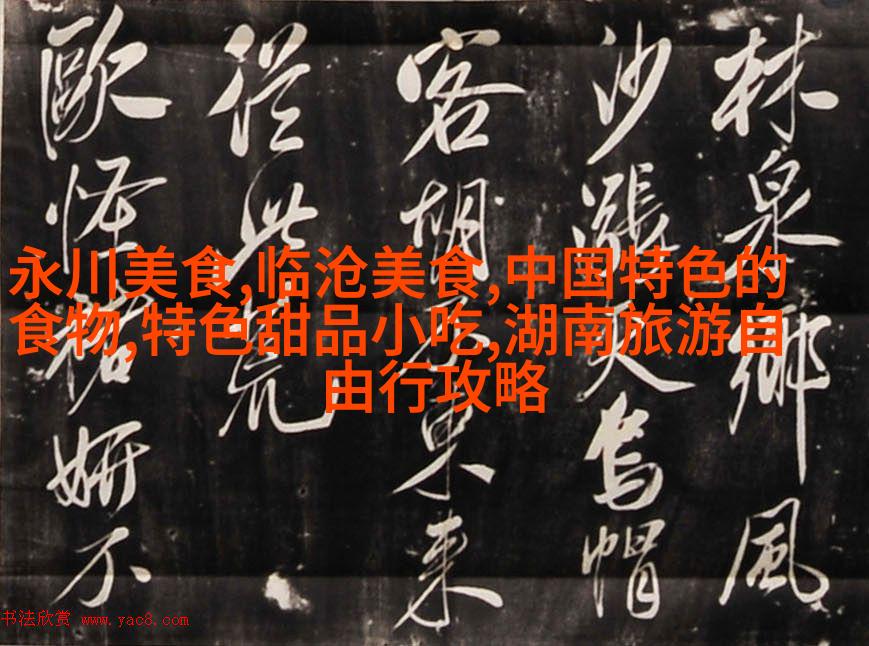 林泉鄉風
沙漲天烏帽
客胡東来
從此荒
歐怪褚妍不
永川美食,临沧美食,中国特色的
食物,特色甜品小吃,湖南旅游自
由行攻略
书法欣赏 www.yac8.com